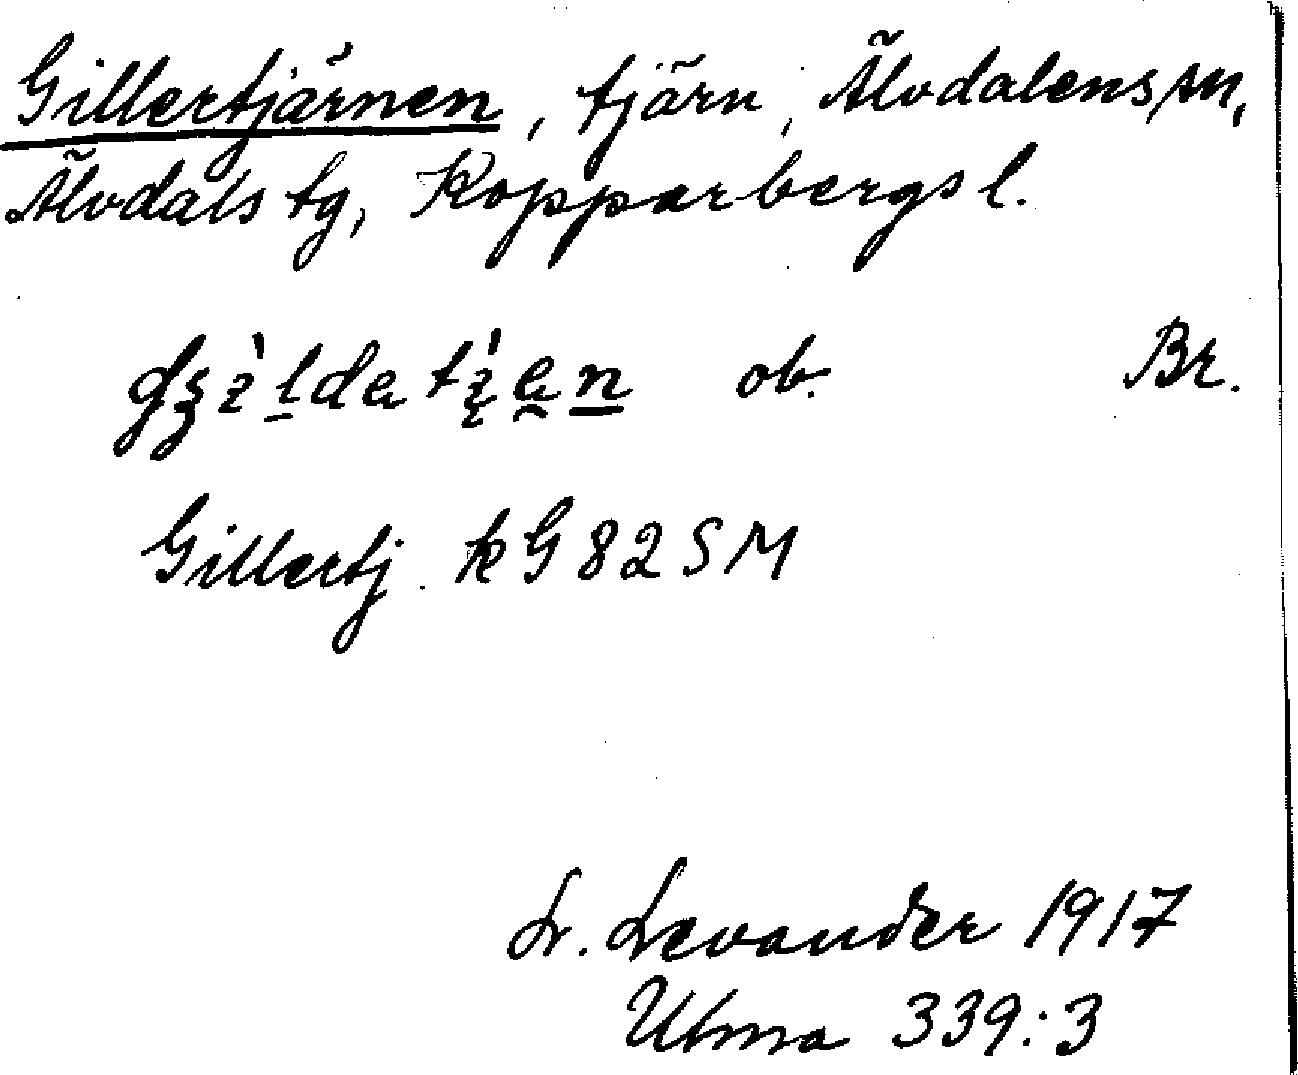 Gillertjärnen, tjärn, Älvdalens sn,
Älvdals tg, Kopparbergs l.
ob. Br.
Gillertj. kG 82 SM
L. Levander 1917
Ulma 339:3